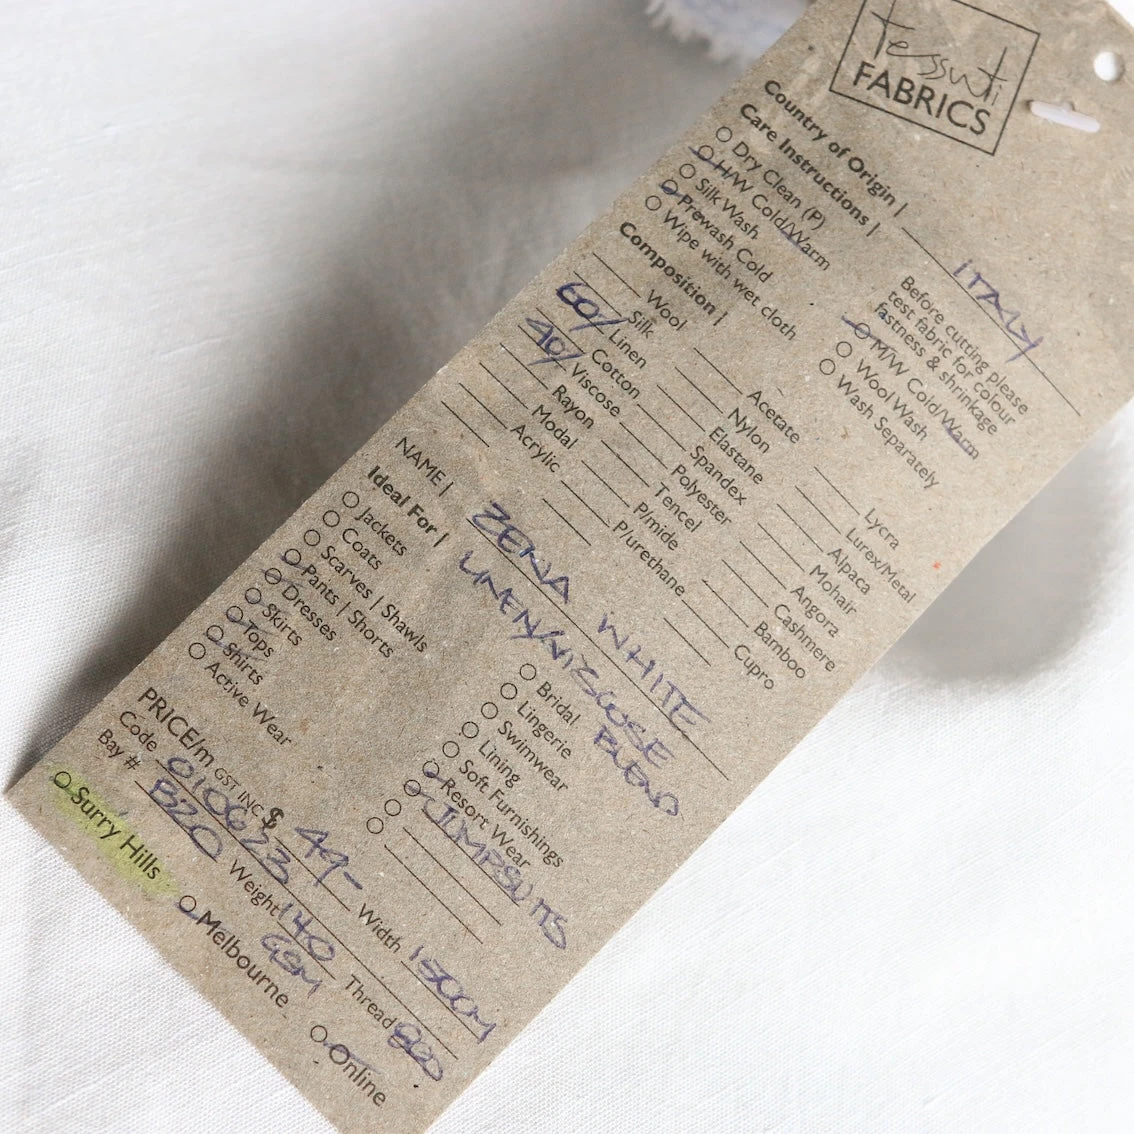 Tessuti
FABRICS
Country of Origin | ITALY
Care Instructions |
Before cutting please
test fabric for colour
fastness & shrinkage
Dry Clean (P)
H/W Cold/Warm
M/W Cold/Warm
Silk Wash
Wool Wash
Prewash Cold
Wash Separately
Wipe with wet cloth
Composition |
Wool Acetate Lycra
Silk Nylon Lurex/Metal
60/ Linen Elastane Alpaca
Cotton Spandex Mohair
40/ Viscose Polyester Angora
Rayon Tencel Cashmere
Modal P/mide Bamboo
Acrylic P/urethane Cupro
NAME | ZENA WHITE
LINEN/VISCOSE
BLEND
Ideal For |
Jackets Bridal
Coats Lingerie
Scarves | Shawls Swimwear
Pants | Shorts Lining
Dresses Soft Furnishings
Skirts Resort Wear
Tops JUMPSUITS
Shirts
Active Wear
PRICE/m GST INC $ 49- Width 150CM
Code 010623 Weight 140 GSM Thread 800
Bay # B20
Surry Hills Melbourne Online